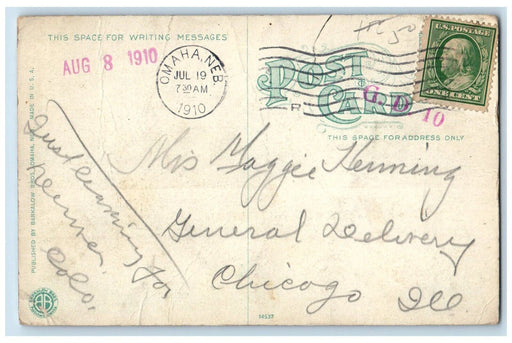 THIS SPACE FOR WRITING MESSAGES
AUG 8 1910
OMAHA, NEB.
JUL 19
7 30 AM
1910
POST CARD
G. D. 10
U.S. POSTAGE
ONE CENT
THIS SPACE FOR ADDRESS ONLY
Just leaving for
Denver
Colo.
Miss Maggie Henning
General Delivery
Chicago Ill.
PUBLISHED BY BARKALOW BROS. OMAHA, NEB. MADE IN U.S.A.